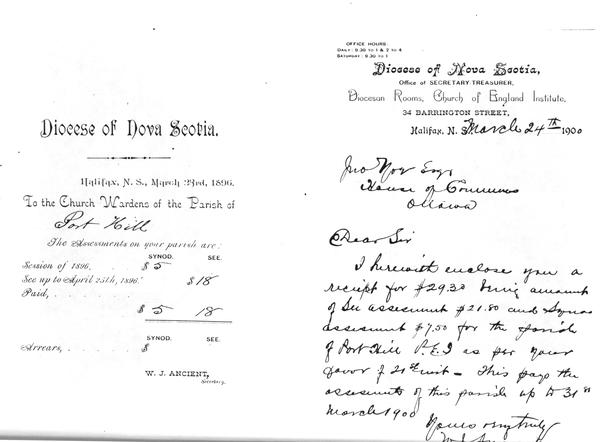 Diocese of Nova Scotia.
Halifax, N. S., March 23rd, 1896.
To the Church Wardens of the Parish of
Port Hill
The Assessments on your parish are:
SYNOD. SEE.
Session of 1896, $5
See up to April 25th, 1896. $18
Paid,
$5 18
SYNOD. SEE.
Arrears, $
W. J. ANCIENT,
Secretary.
OFFICE HOURS:
DAILY: 9.30 TO 1 & 2 TO 4
SATURDAY: 9.30 TO 1
Diocese of Nova Scotia,
Office of SECRETARY-TREASURER,
Diocesan Rooms, Church of England Institute,
34 BARRINGTON STREET,
Halifax, N. S. March 24th 1900
Jno Esqr
House of Commons
Ottawa
Dear Sir
I herewith enclose you a
receipt for $29.30 being amount
of See assessment $21.80 and Synod
assessment $7.50 for the parish
of Port Hill P.E.I as per your
favor of 21st inst - This pays the
assessments of this parish up to 31st
March 1900
Yours very truly